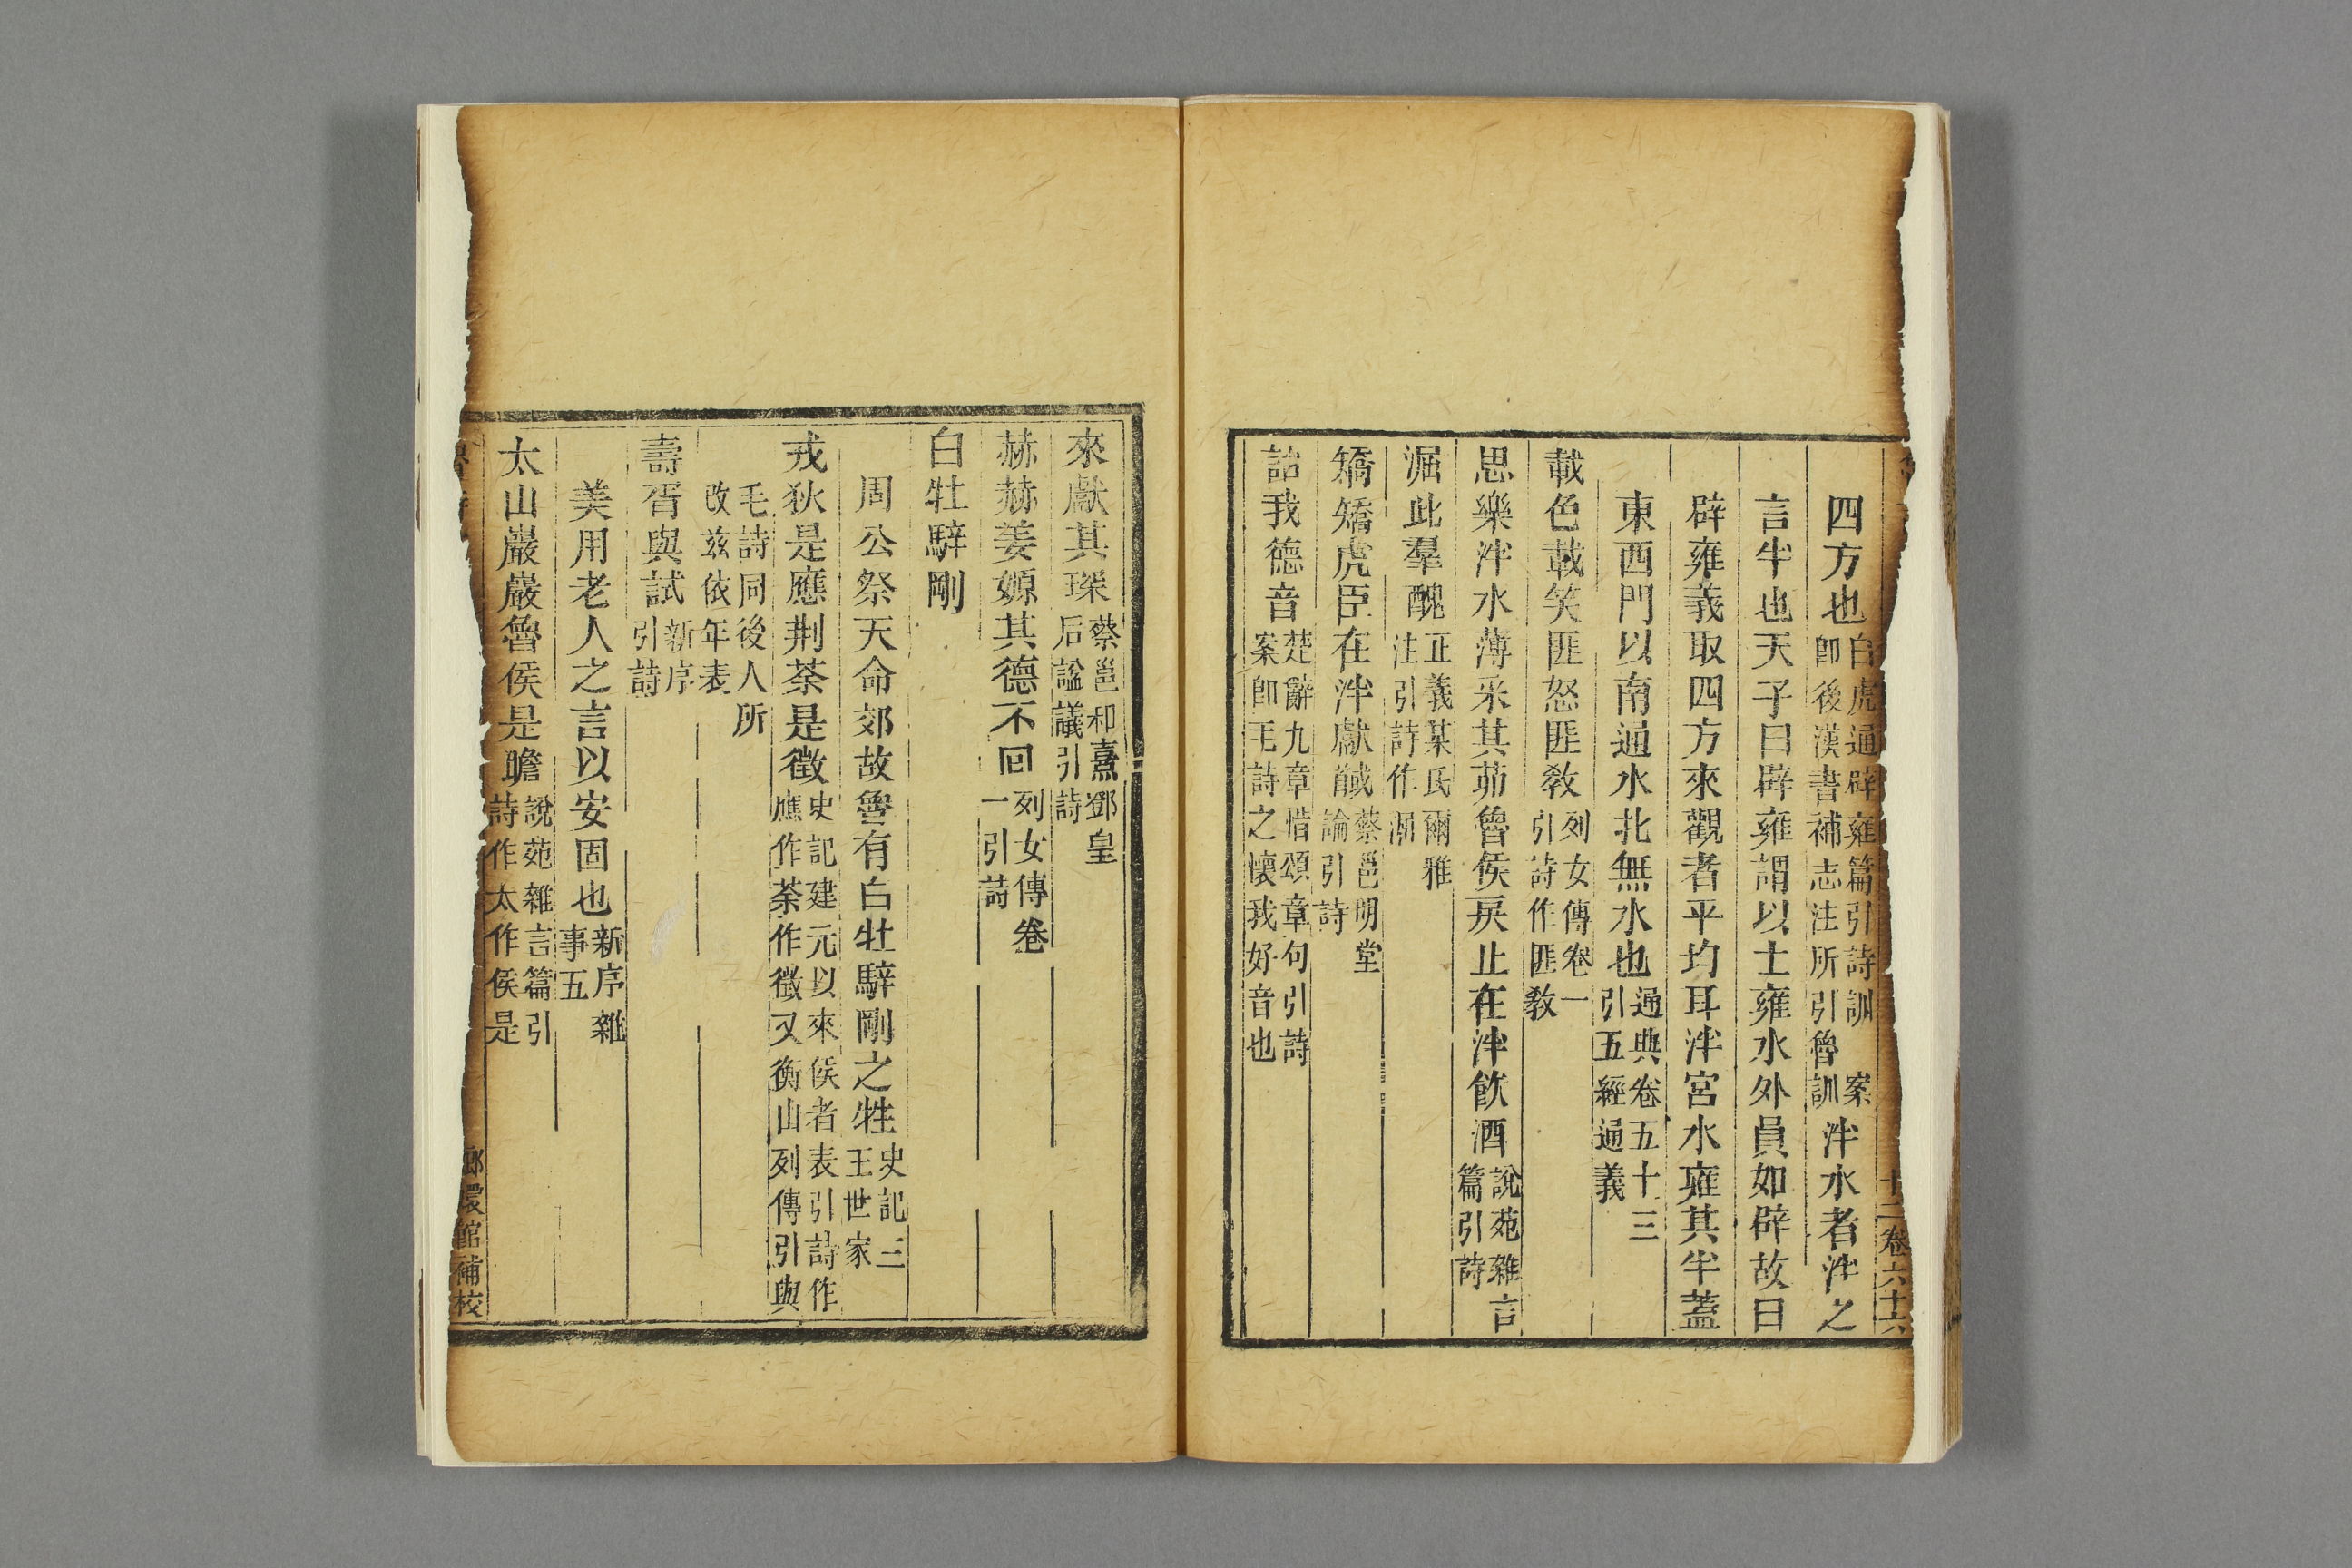 四方也白虎通辟雍篇引詩訓 案即後漢書補志注所引魯訓泮水者泮之
言半也天子曰辟雍謂以土雍水外員如辟故曰
辟雍義取四方來觀者平均耳泮宮水雍其半蓋
東西門以南通水北無水也通典卷五十三引五經通義
載色載笑匪怒匪教列女傳卷一引詩作匪教
思樂泮水薄采其茆魯侯戾止在泮飲酒說苑雜言篇引詩
淈此羣醜正義某氏爾雅注引詩作淈
矯矯虎臣在泮獻馘蔡邕明堂論引詩
詒我德音楚辭九章惜頌章句引詩案即毛詩之懷我好音也
十二卷六十六
來獻其琛蔡邕和熹鄧皇后謚議引詩
赫赫姜嫄其德不回列女傳卷一引詩
白牡騂剛
周公祭天命郊故魯有白牡騂剛之牲史記三王世家
戎狄是應荆荼是徵史記建元以來侯者表引詩作應作荼作徵又衡山列傳引與
毛詩同後人所改茲依年表
壽胥與試新序引詩
美用老人之言以安固也新序雜事五
太山巖巖魯侯是瞻說苑雜言篇引詩作太作侯是
嬛館補校